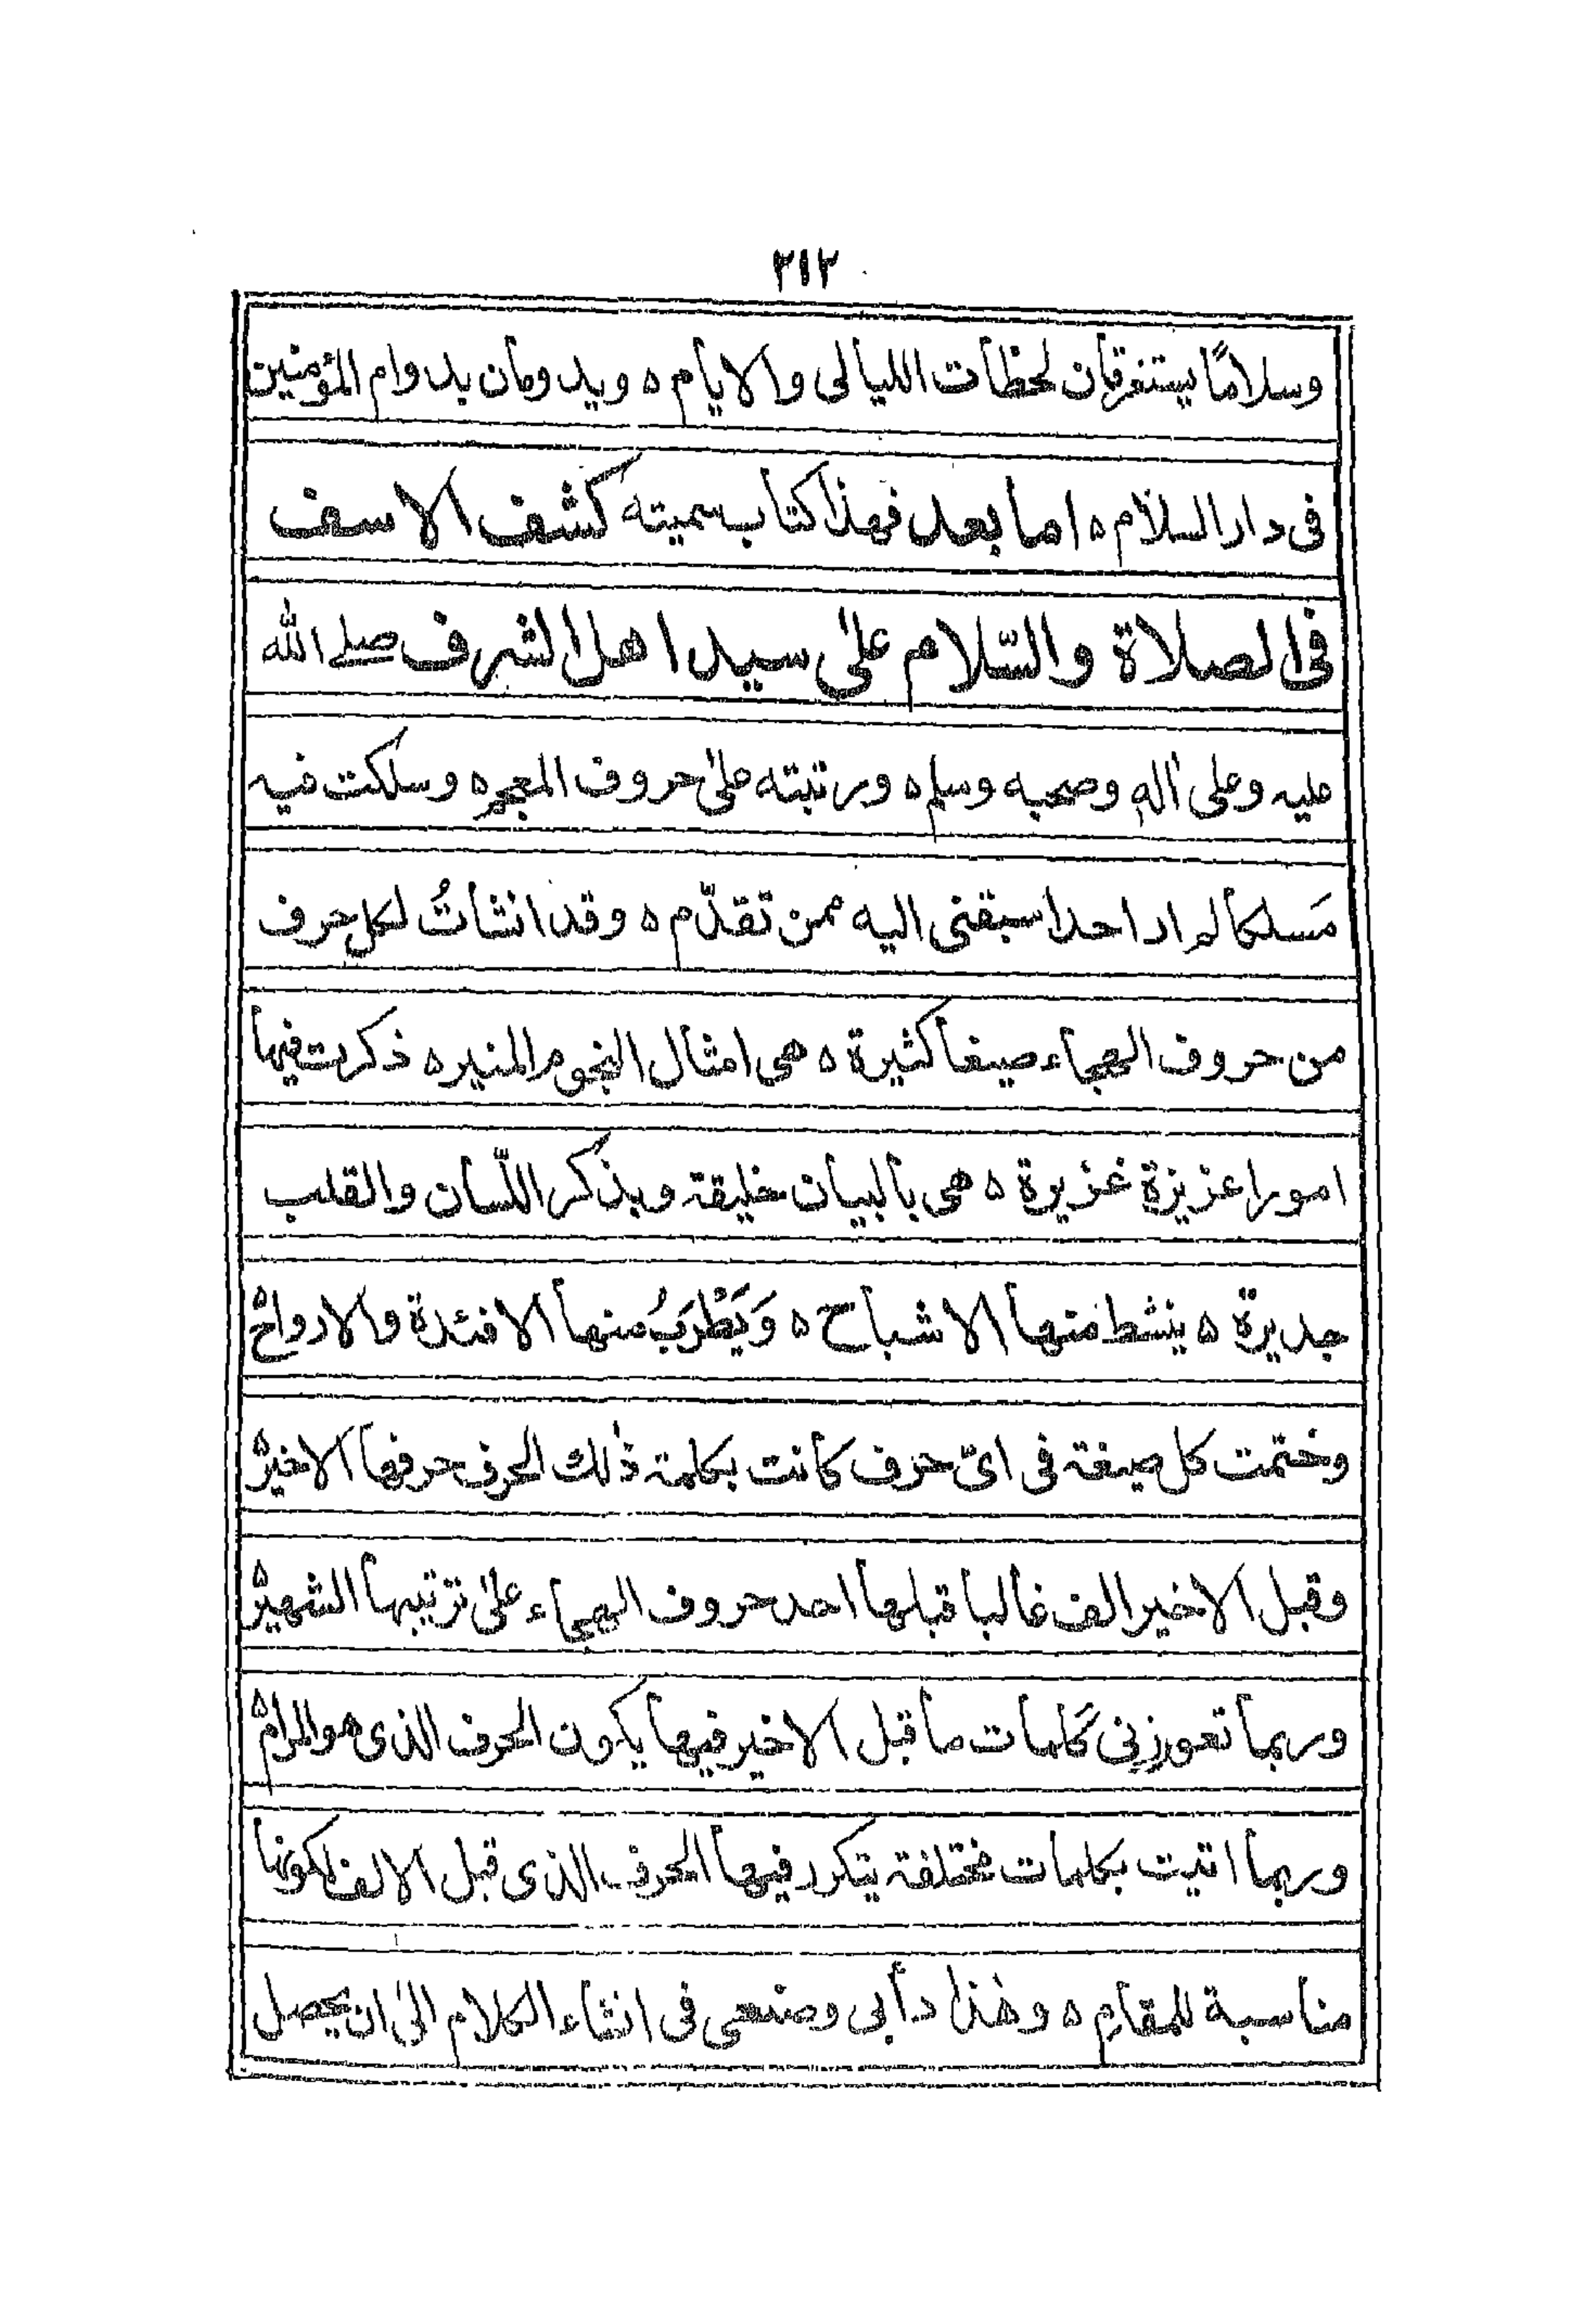 ٢١٢
وسلامًا يستغرقان لحظات الليالى والايام ٥ ويدومان بدوام المؤمنين
فى دار السلام ٥ اما بعد فهذا كتاب سميته كشف الاسف
فى الصلاة والسّلام علىٰ سيد اهل الشرف صلے الله
عليه وعلى اٰلهٖ وصحبه وسلم ٥ ورتبته علىٰ حروف المعجم ٥ وسلكت فيه
مَسلكا لم ار احدا سبقنى اليه ممن تقدّم ٥ وقد انشأتُ لكل حرف
من حروف الهجاء صيغا كثيرة ٥ هى امثال النجوم المنيره ٥ ذكرت فيها
امورا عزيزة غزيرة ٥ هى بالبيان خليقة وبذكر اللّسان والقلب
جديرة ٥ ينشط منها الاشباح ٥ وَيَطْرَبُ منها الافئدة والارواح ٥
وختمت كل صيغة فى اىّ حرف كانت بكلمة ذٰلك الحرف حرفها الاخير ٥
وقبل الاخير الف غالبا قبلها احد حروف الهجاء علىٰ ترتيبها الشهير ٥
وربما تعوزنِى كلمات ما قبل الاخير فيها يكون الحرف الذى هو المرام ٥
وربما اتيت بكلمات مختلفة يتكرر فيها الحرف الذى قبل الالف لكونها
مناسبة للمقام ٥ وهٰذا دأبى وصنعى فى انشاء الكلام الىٰ ان يحصل